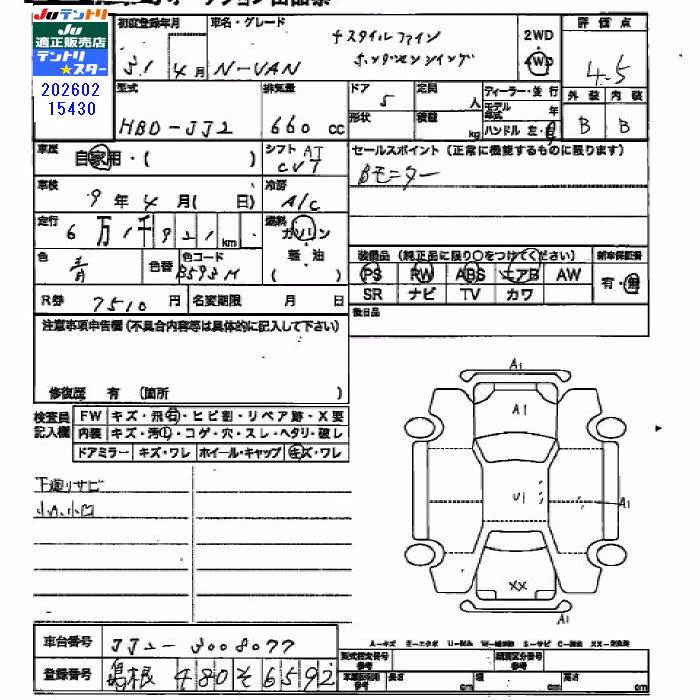 Juテントリ
Ju
適正販売店
テントリ
★スター
202602
15430
初度登録年月
31 4月
車名・グレード
+スタイル ファイン
ホンダセンシング
N-VAN
2WD
4WD
評価点
4.5
型式
HBD-JJ2
排気量
660 cc
ドア 5
形状
定員 人
積載 kg
ディーラー・並行
モデル年式 年
ハンドル 左・右
外装 内装
B B
車歴
自家用・( )
シフト AT
CVT
セールスポイント(正常に機能するものに限ります)
Bモニター
車検
9年4月( 日)
冷房
A/C
走行
6万1千921km
燃料
ガソリン
軽・油
( )
色
青
色替
色コード
B593M
装備品(純正品に限り○をつけてください)
新車保証書
PS RW ABS エアB AW
有・無
SR ナビ TV カワ
R券 7510円
名変期限 月 日
後日品
注意事項申告欄(不具合内容等は具体的に記入して下さい)
修復歴 有 (箇所 )
検査員
記入欄
FW キズ・飛石・ヒビ割・リペア跡・X要
内装 キズ・汚レ・コゲ・穴・スレ・ヘタリ・破レ
ドアミラー キズ・ワレ ホイール・キャップ キズ・ワレ
下廻りサビ
小A、小U
A1
A1
U1
A1
XX
A1
A-キズ E-エクボ U-凹み W-補修跡 S-サビ C-腐食 XX-交換済
車台番号 JJ2-3008077
型式指定番号
参考
類別区分番号
参考
登録番号 島根 480 そ 6592
車庫証明用
参考
長さ cm 幅 cm 高さ cm